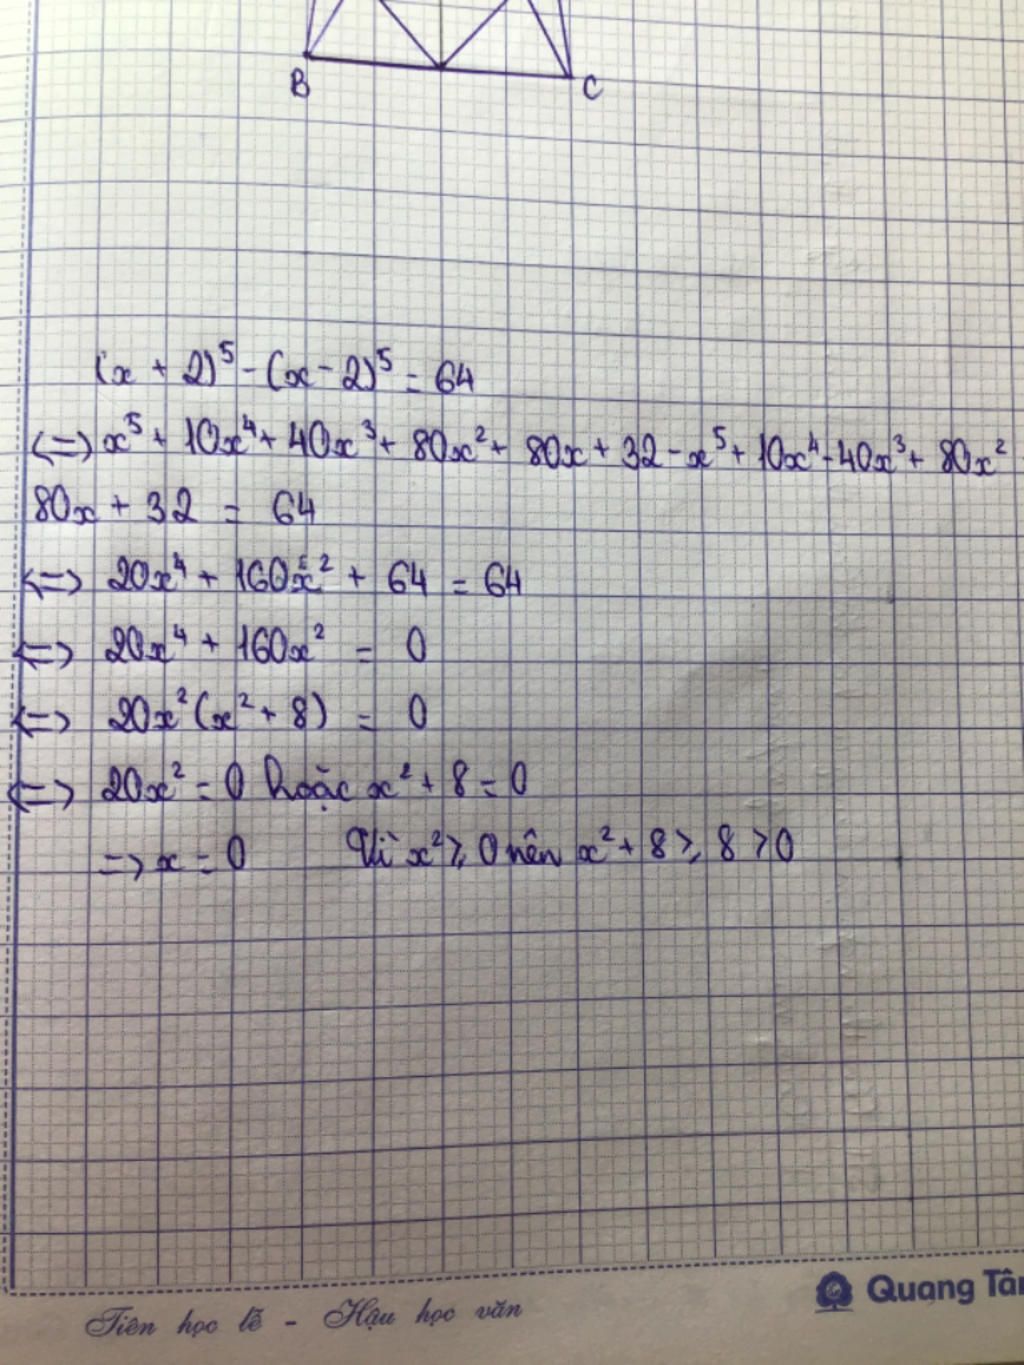 B C
(x + 2)⁵ - (x - 2)⁵ = 64
<=> x⁵ + 10x⁴ + 40x³ + 80x² + 80x + 32 - x⁵ + 10x⁴ - 40x³ + 80x²
80x + 32 = 64
<=> 20x⁴ + 160x² + 64 = 64
<=> 20x⁴ + 160x² = 0
<=> 20x²(x² + 8) = 0
<=> 20x² = 0 hoặc x² + 8 = 0
=> x = 0 Vì x² ≥ 0 nên x² + 8 ≥ 8 > 0
Tiên học lễ - Hậu học văn
Quang Tâ